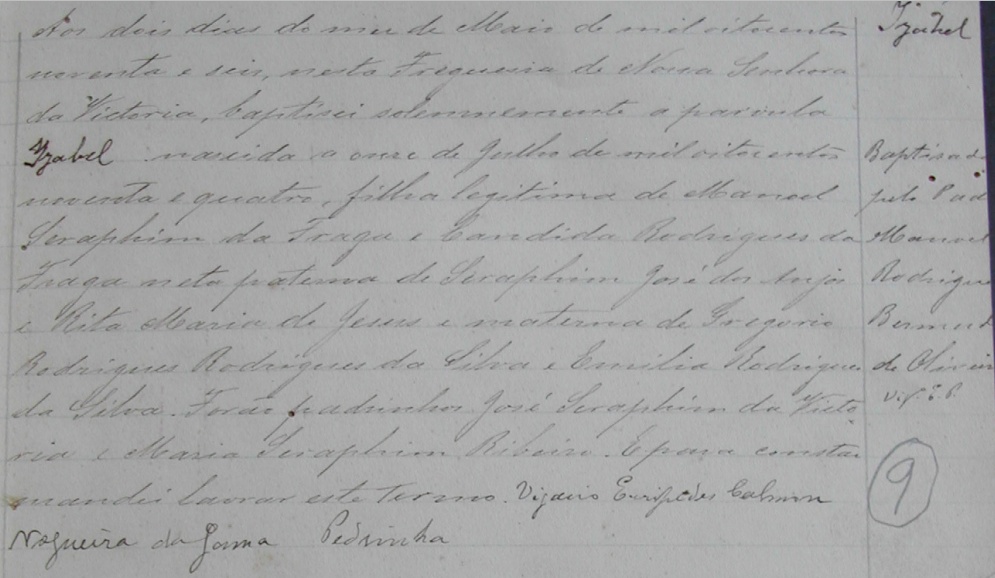 Aos dois dias do mez de Maio de mil oitocentos
noventa e seis, nesta Freguezia de Nossa Senhora
da Victoria, baptisei solemnemente a parvula
Izabel nascida a onze de Julho de mil oitocentos
noventa e quatro, filha legitima de Manoel
Seraphim da Fraga e Candida Rodrigues da
Fraga neta paterna de Seraphim José dos Anjos
e Rita Maria de Jesus e materna de Gregorio
Rodrigues Rodrigues da Silva e Emilia Rodrigues
da Silva. Forão padrinhos José Seraphim da Victo
ria e Maria Seraphim Ribeiro. E para constar
mandei lavrar este termo. Vigario Euripedes Calmon
Nogueira da Gama Pedrinha
Izabel
Baptisada
pelo Pad
Manoel
Rodrigues
Bermud
de Oliveir
Vig. E.
9